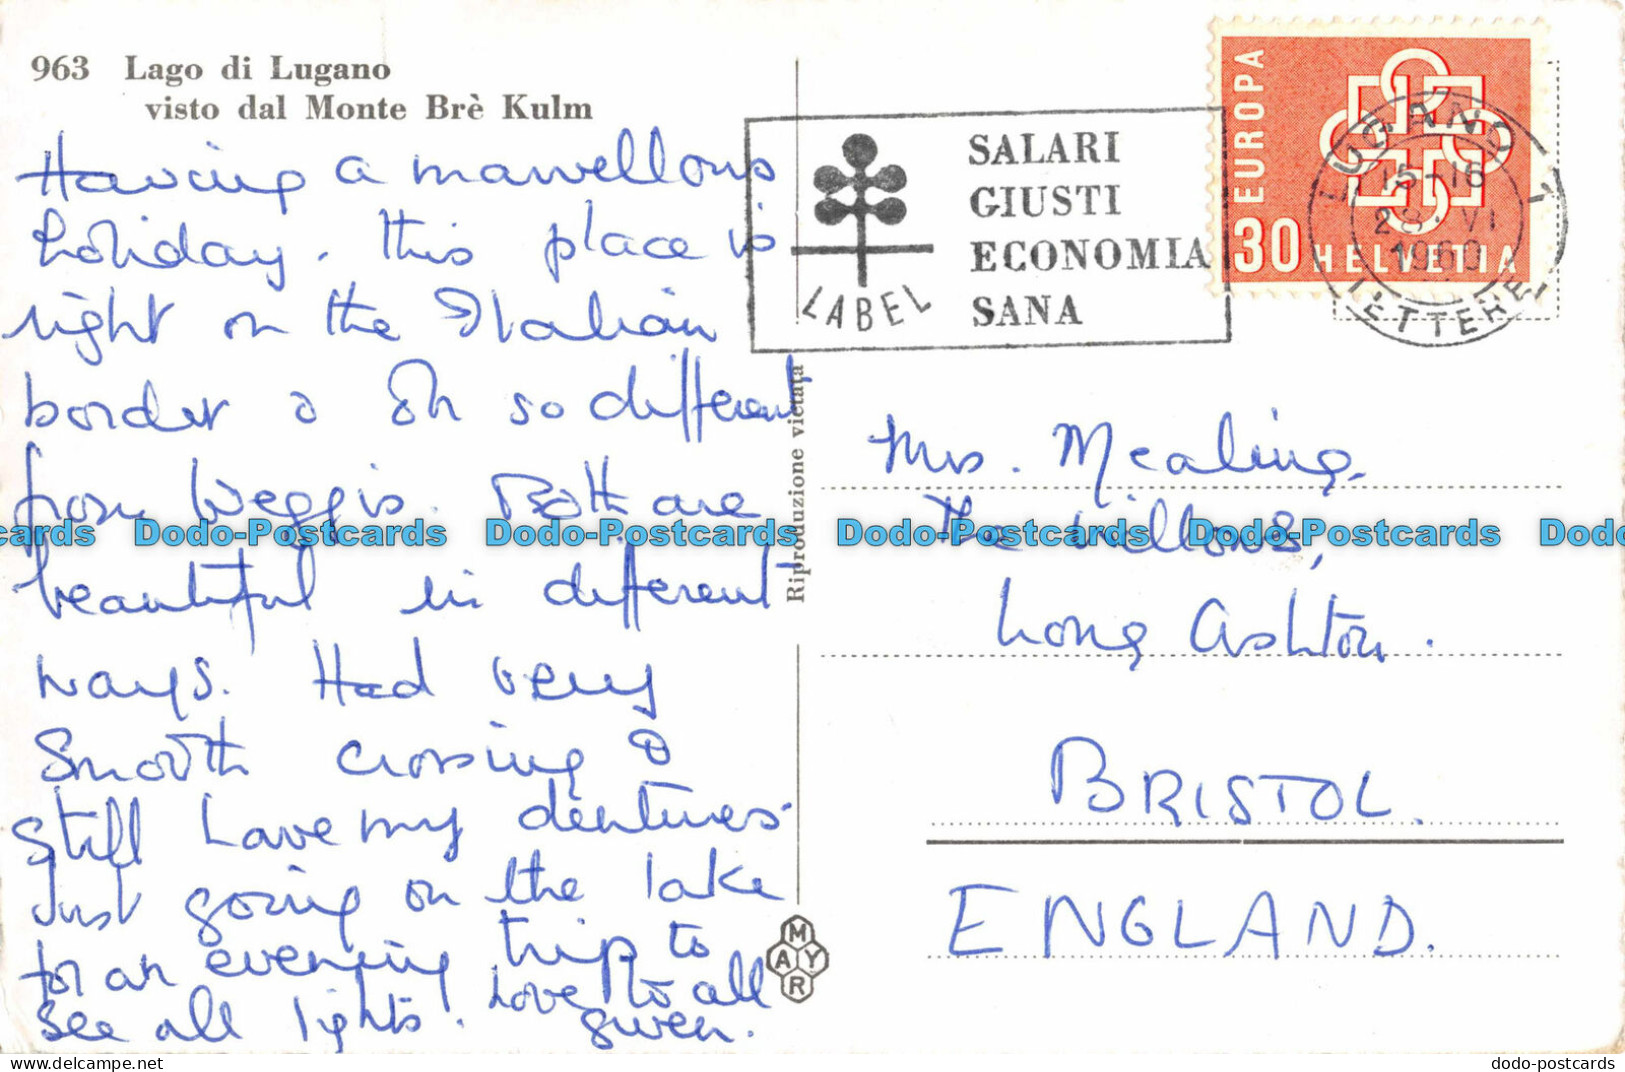 963 Lago di Lugano
visto dal Monte Brè Kulm
Having a marvellous
holiday. this place is
right on the Italian
border & Oh so different
from Weggis. Both are
beautiful in different
ways. Had very
Smooth crossing &
Still have my dentures.
Just going on the lake
for an evening trip to
see all lights. Love to all
Gwen.
Riproduzione vietata
MAYR
LABEL
SALARI
GIUSTI
ECONOMIA
SANA
EUROPA
30 HELVETIA
LUGANO 1
15-16
28. VI
1960
LETTERE
Mrs. Mealing,
The Willows,
Long Ashton.
BRISTOL.
ENGLAND.
Dodo-Postcards Dodo-Postcards Dodo-Postcards Dodo-Postcards
dodo-postcards